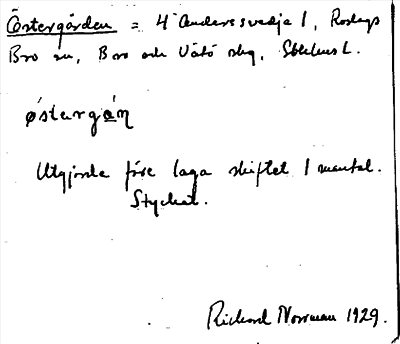 Östergården = 4 Andersvedja 1, Roslags
Bro sn, Bro och Vätö skg, Sthlms l.
østergán
Utgjorde före laga skiftet 1 mantal.
Styckat.
Richard Norrman 1929.